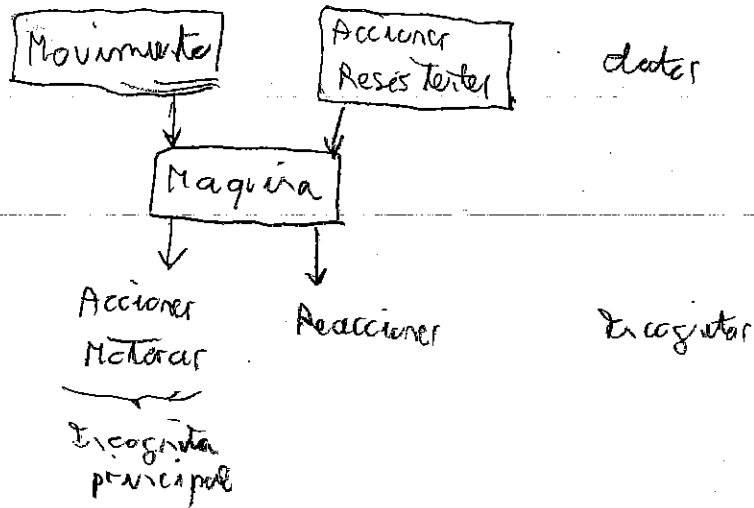 Movimiento
Acciones
Resistentes
datos
Maquina
Acciones
Motoras
Reacciones
Incognitas
Incognita
principal